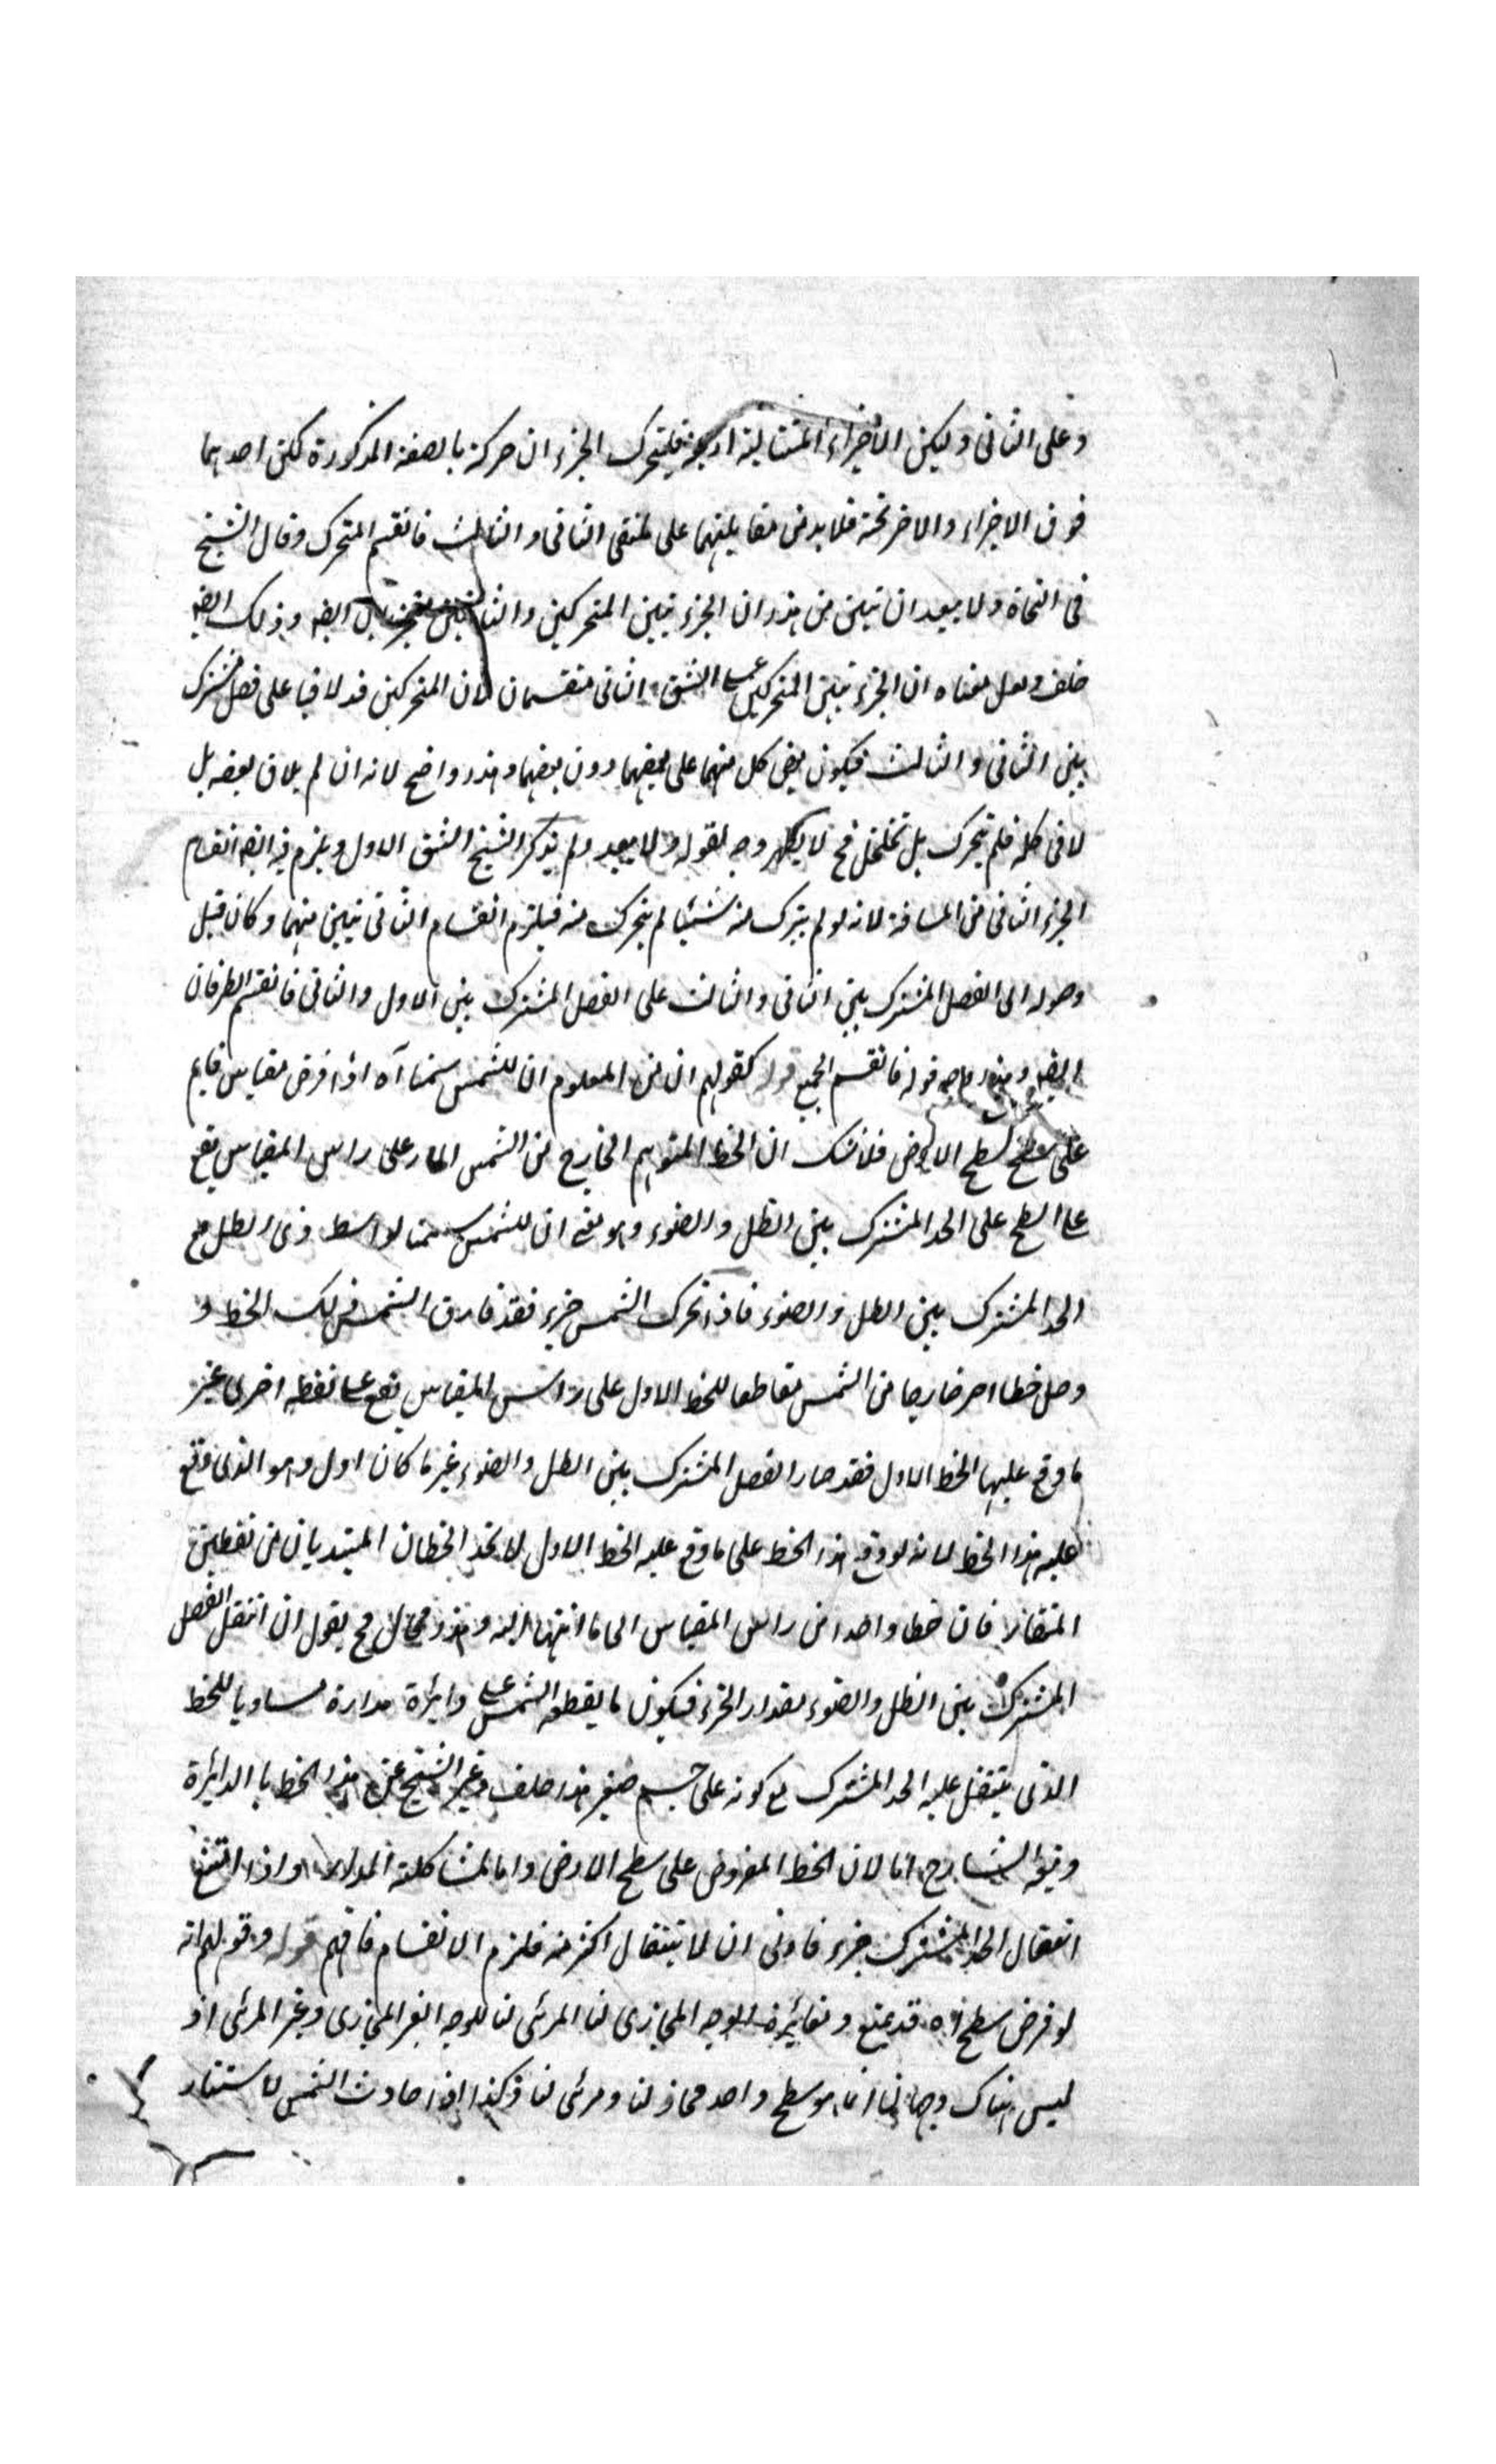 وعلى الثانى وليكن الاجزاء المتتالية اربعة فليتحرك الجزءان حركة بالصفة المذكورة لكن احدهما
فوق الاجزاء والاخر تحته فلابد من مقابلتهما على ملتقى الثانى والثالث فانقسم المتحرك وقال الشيخ
فى النجاة ولا يبعد ان تبين من هذا ان الجزء تبين المتحركين ايضه وذلك ايضه
خلف ولعل معناه ان الجزء تبين المتحركين على الشق الثانى منقسمان لان المتحركين قد لاقيا على فصل مشترك
بين الثانى والثالث فيكون بعض كل منهما على بعضهما دون بعضهما وهذا واضح لانه ان لم يلاق بعضه بل
لاقى كله فلم يتحرك بل تخلخل فح لا يظهر وجه لقوله ولا يبعد ولم يذكر الشيخ الشق الاول ويلزم فيه ايضه انقسام
الجزء الثانى من المسافة لانه لو لم يترك منه شيئا لم يتحرك منه فيلزم انقسام الثانى تبين منهما وكان قبل
وصوله الى الفصل المشترك بين الثانى والثالث على الفصل المشترك بين الاول والثانى فانقسم الطرفان
ايضه قوله فانقسم الجميع قوله كقولهم ان من المعلوم ان للشمس سمتا آه اذا فرض مقياس قايم
على سطح الارض فلا شك ان الخط المتوهم الخارج من الشمس المار على راس المقياس يقع
على السطح على الحد المشترك بين الظل والضوء وهو معنى ان للشمس سمتا بواسطة ذى الظل مع
الحد المشترك بين الظل والضوء فاذا تحرك الشمس جزء فقد فارق الشمس ذلك الخط و
وصل خطا اخر خارجا من الشمس مقاطعا للخط الاول على راس المقياس يقع على نقطه اخرى غير
ما وقع عليها الخط الاول فقد صار الفصل المشترك بين الظل والضوء غير ما كان اول وهو الذى وقع
عليه هذا الخط لانه لو وقع هذا الخط على ما وقع عليه الخط الاول لاتحد الخطان المبتديان من نقطتين
خطا واحدا من راس المقياس الى ما انتهيا اليه وهذا محال فح يقول ان انتقل الفصل
المشترك بين الظل والضوء بمقدار الجزء فيكون ما يقطعه الشمس على دايرة مدارة مساويا للخط
الذى ينتقل عليه الحد المشترك مع كونه على جسم صغير هذا خلف وعبر الشيخ عن هذا الخط با الدائرة
الشارح اما لان الخط المفروض على سطح الارض واما لمشاكلة المدار واذا امتنع
انتقال الحد المشترك جزء فاولى ان لا ينتقال اكثر منه فلزم الانقسام فافهم قوله وقولهم انه
لو فرض سطح آه قد يمنع ومغائرة الوجه المحاذى لنا المرئى لنا للوجه الغير المحاذى وغير المرئى اذ
ليس هناك وجهان انما هو سطح واحد محاذ لنا ومرئى لنا وكذا اذا حاذت الشمس لاستنار